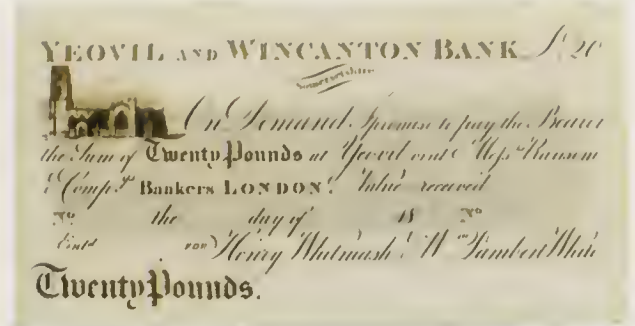 YEOVIL AND WINCANTON BANK £20
Somersetshire
On Demand I promise to pay the Bearer
the Sum of Twenty Pounds at Yeovil or at Messrs Ransom
& Compy Bankers LONDON. Value received
No. the day of 18 No.
Entd FOR Henry Whitmash & Wm Lambert White
Twenty Pounds.